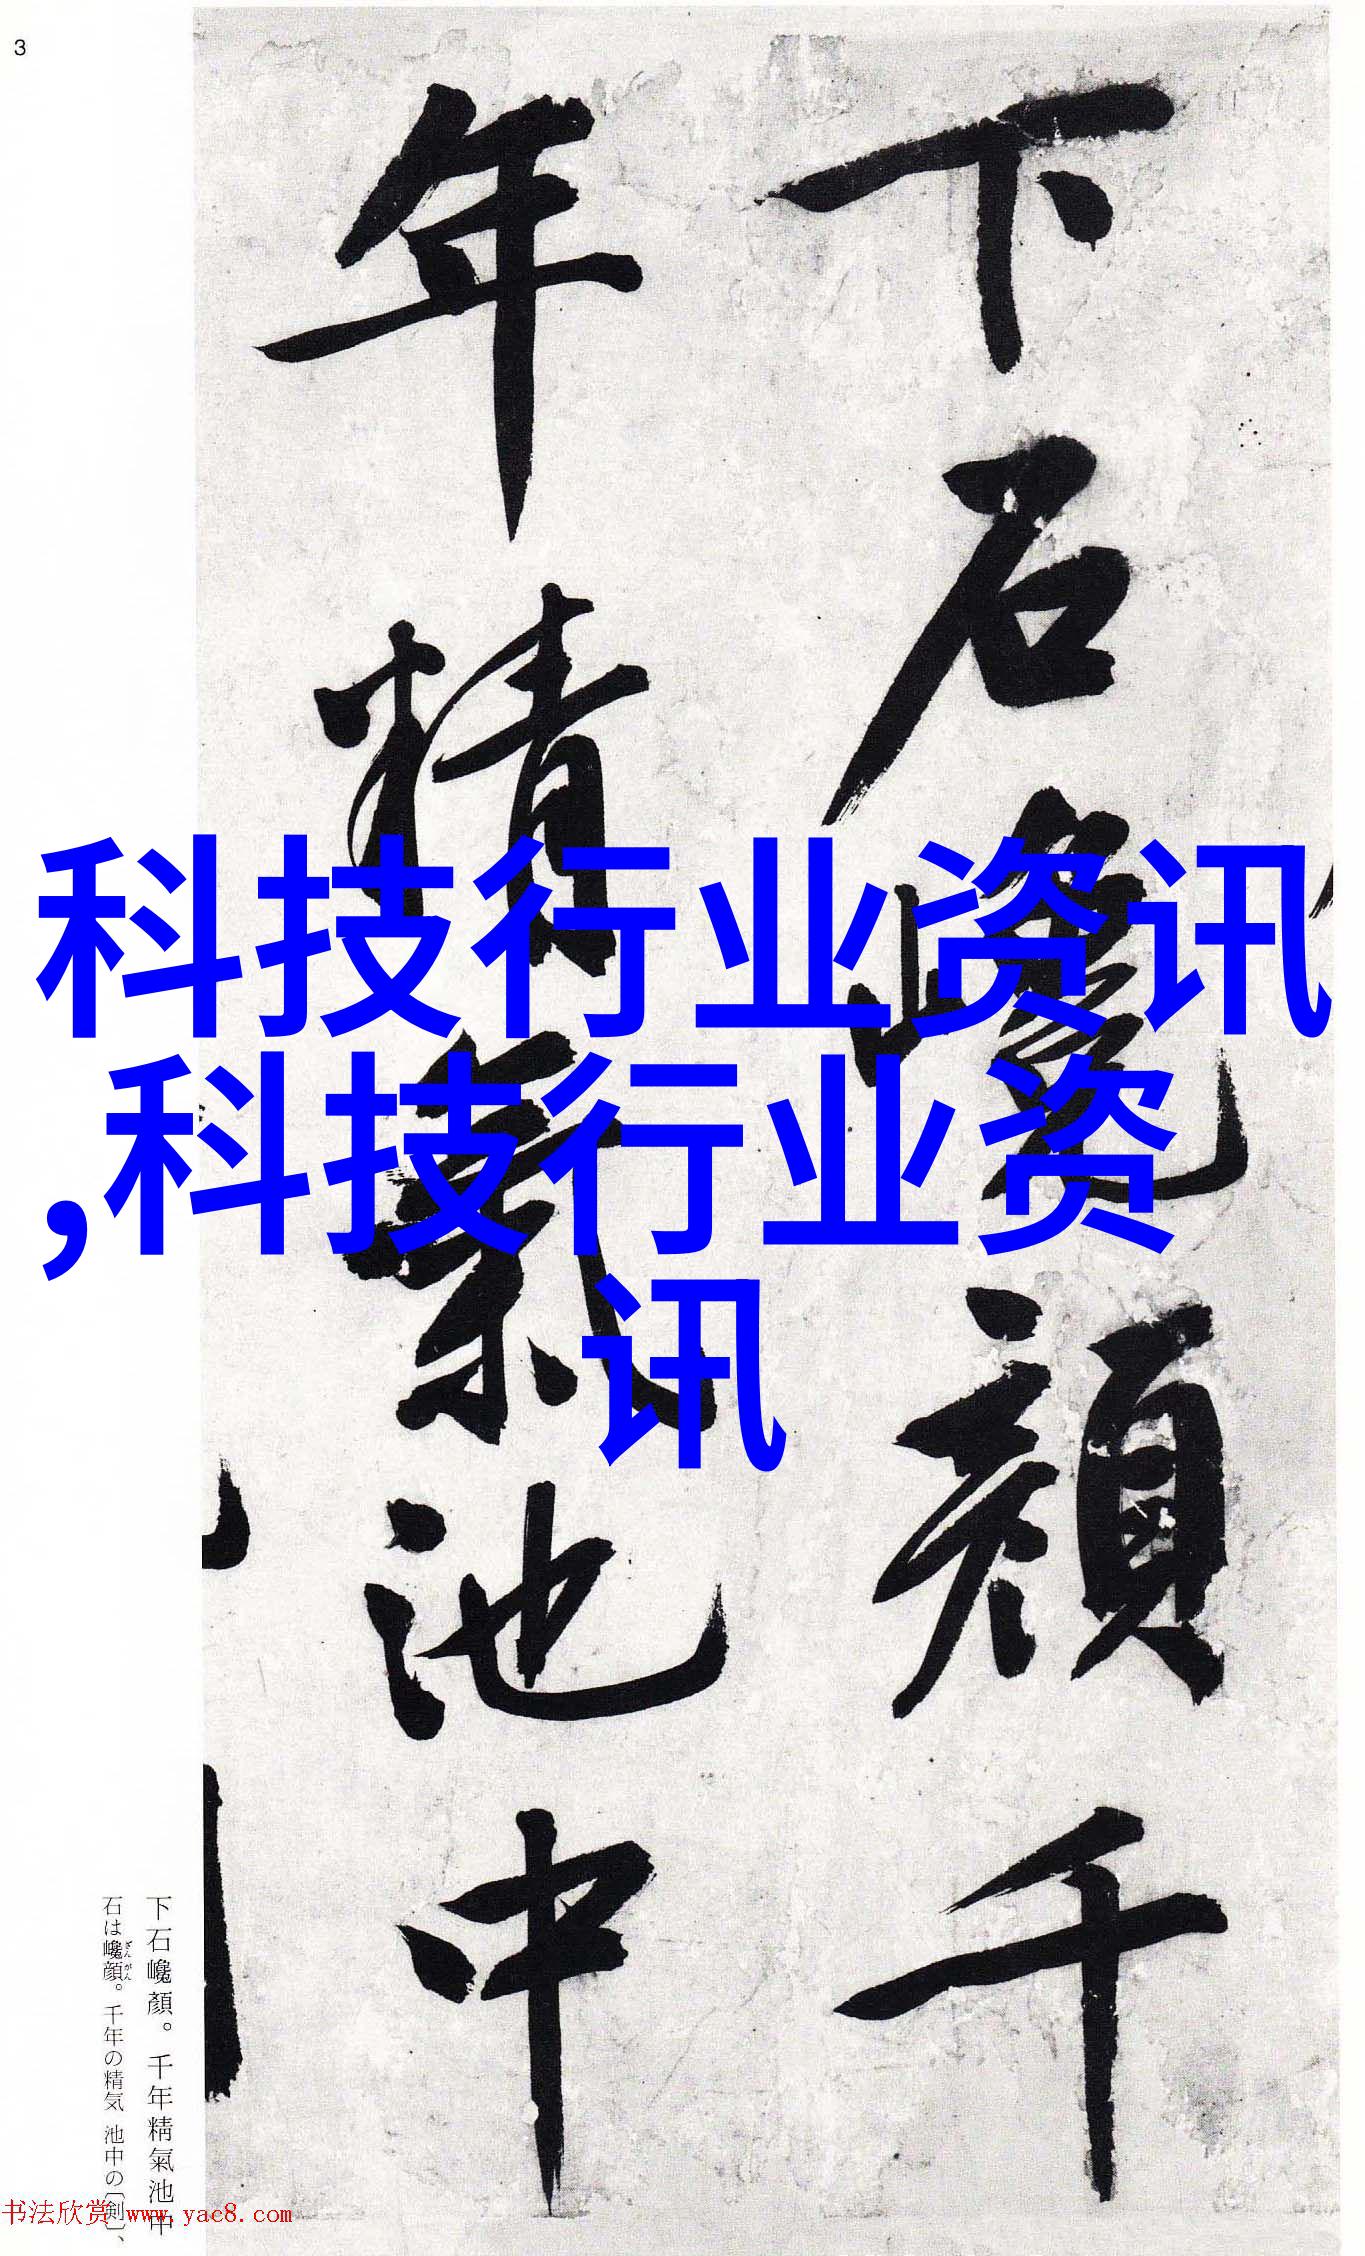 3
下石巉顏千
年精氣池中
科技行业资讯
,科技行业资
讯
下石巉顏。千年精氣池中
石は巉顔。千年の精気 池中の〔剣〕、
ざんがん
书法欣赏 www.yac8.com